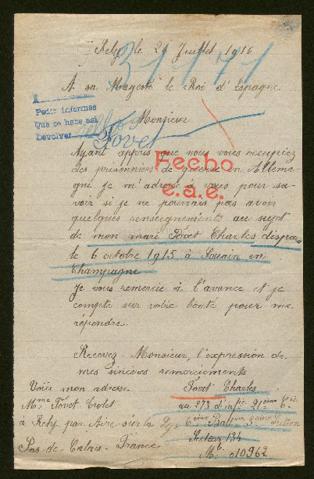 Rely le 24 Juillet 1916
31771
A sa Majesté le Roi d'Espagne
A
Pedir informes
Que se haga así
Devolver
Monsieur
Tovot
Ayant appris que vous vous occupiez
des prisonniers de guerre en Allema-
gne je m'adresse à vous pour sa-
voir si je ne pourrais pas avoir
quelques renseignements au sujet
de mon mari Tovot Charles disparu
le 6 octobre 1915 à Souain en
Champagne
Fecho
e.a.e.
Je vous remercie à l'avance et je
compte sur votre bonté pour me
répondre.
Recevez, Monsieur, l'expression de
mes sincères remerciements
Voici mon adresse
Mme Tovot
à Rely par Aire sur la Lys
Pas de Calais - France
Tovot Charles
au 273 d'infie 21me Cie
6me Bat 2me Section
Secteur 134
Mle 010962